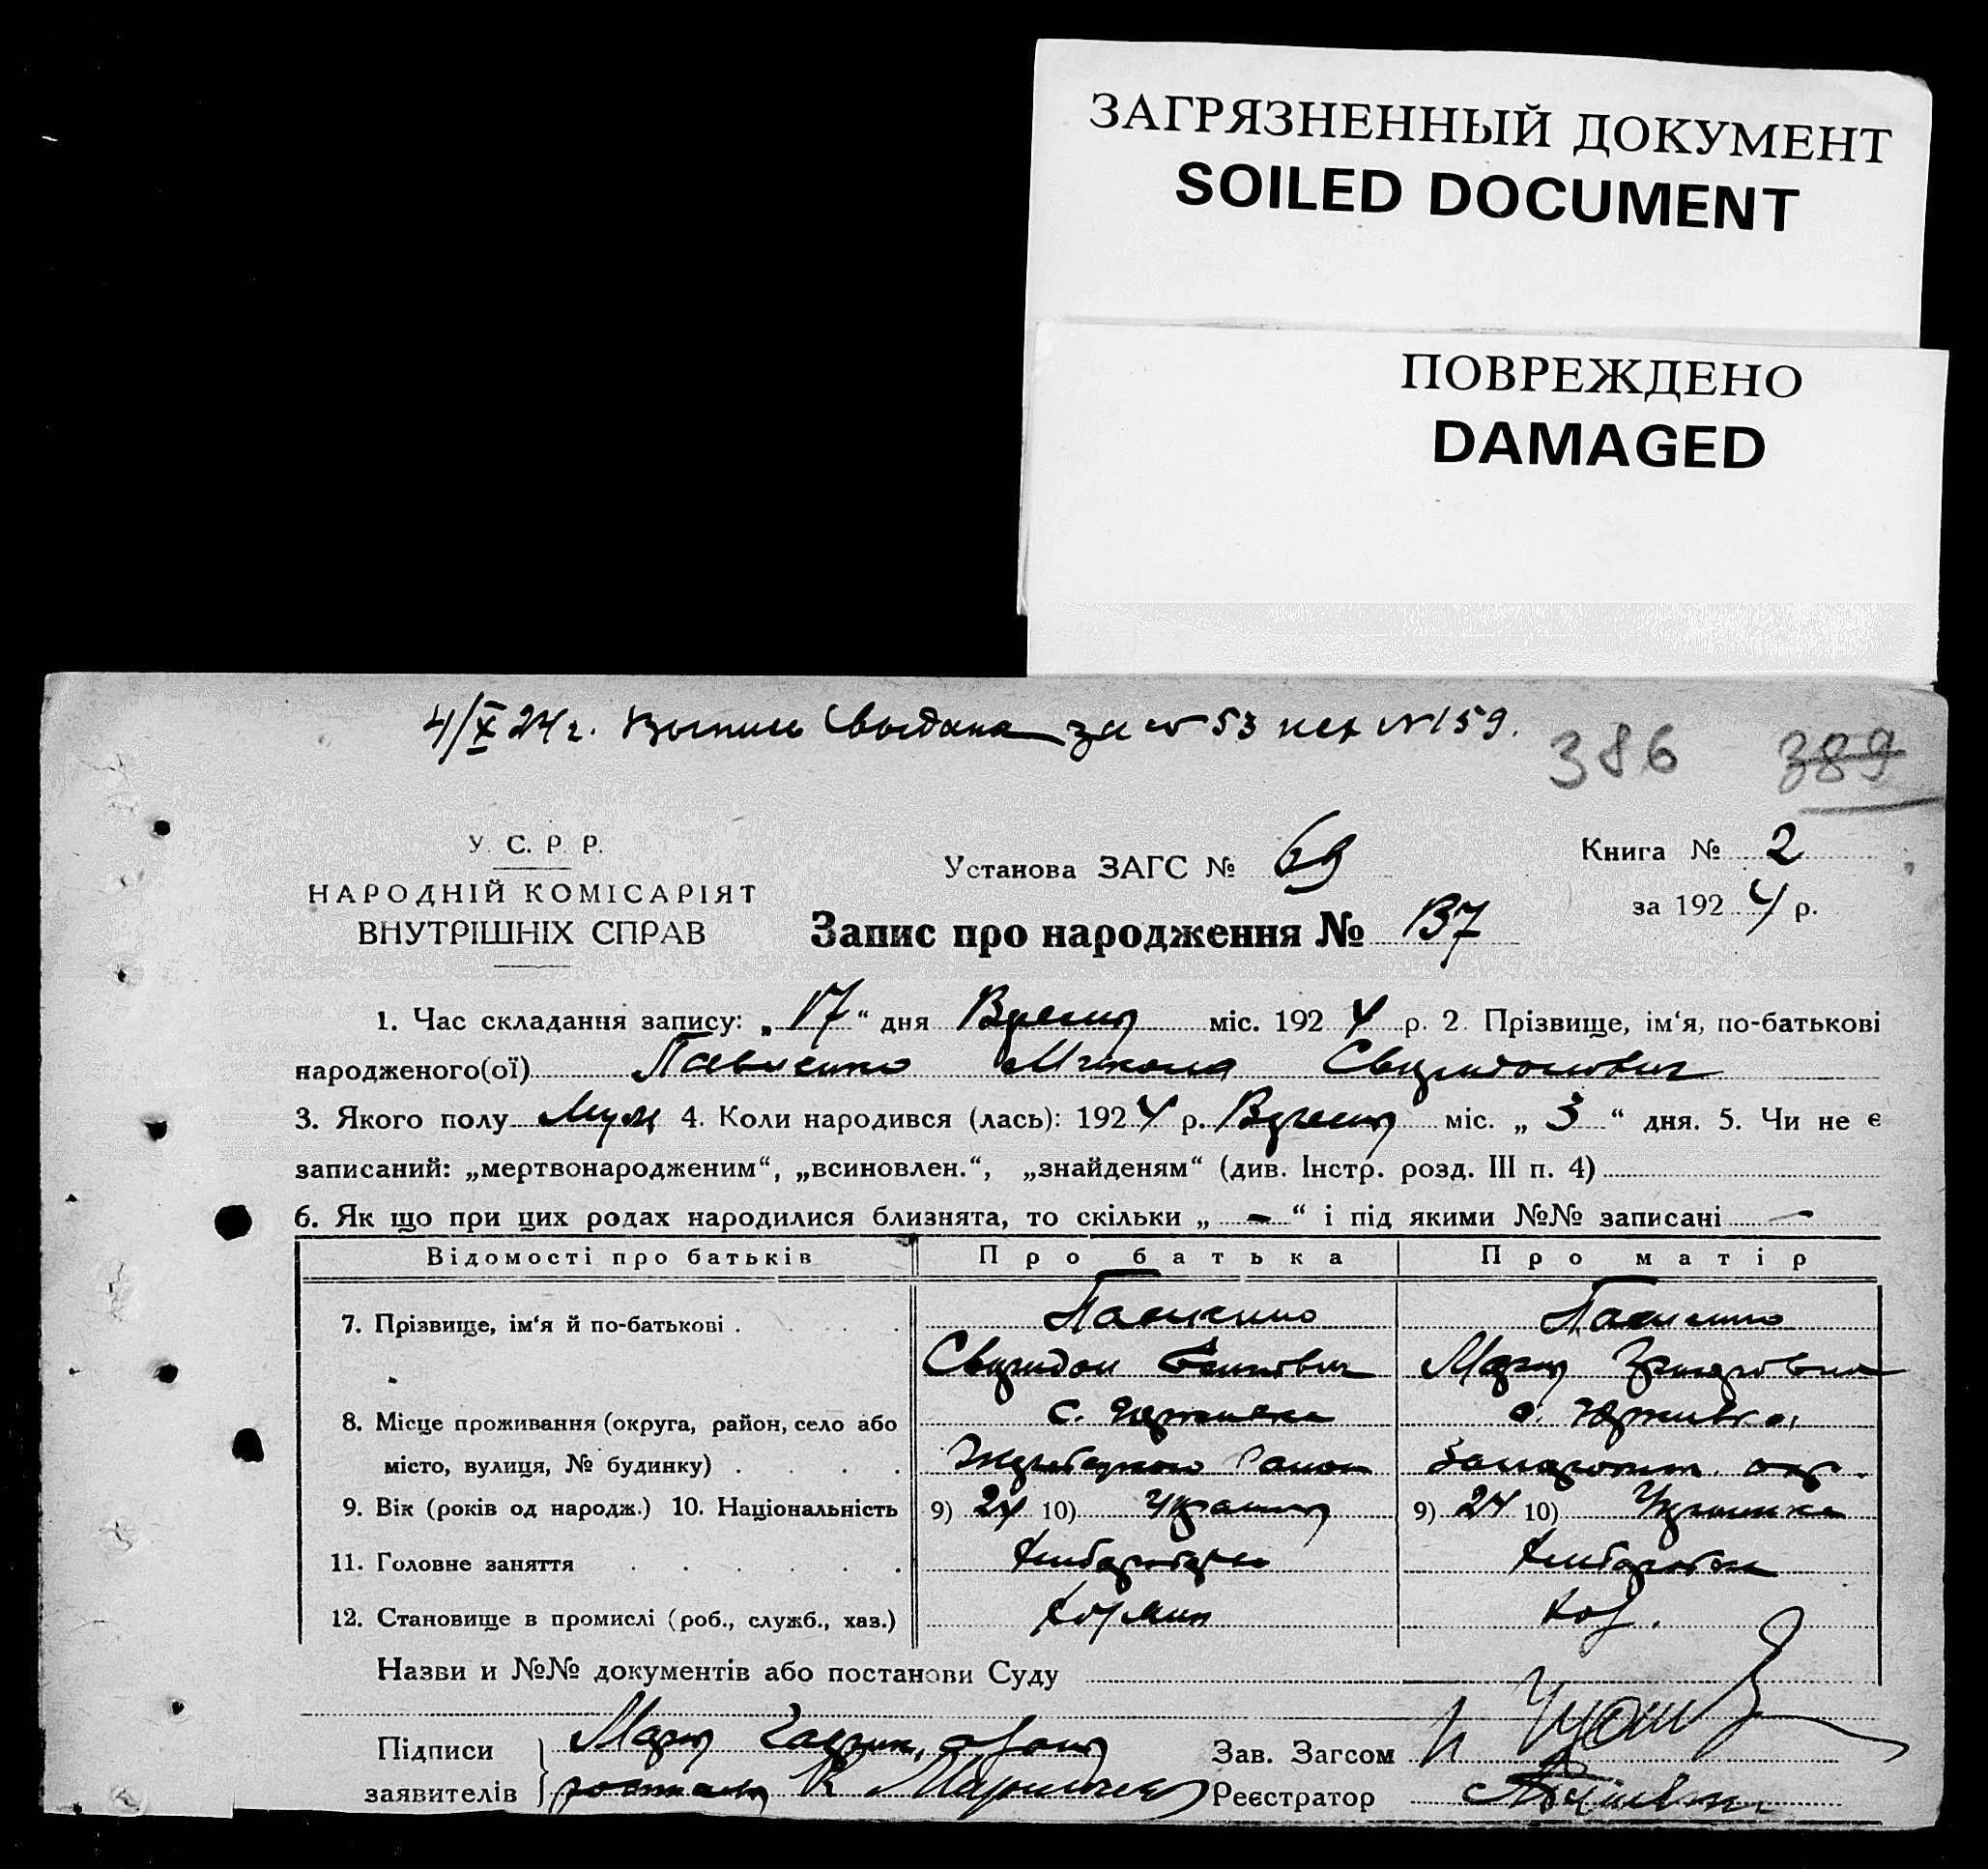 ЗАГРЯЗНЕННЫЙ ДОКУМЕНТ
SOILED DOCUMENT
ПОВРЕЖДЕНО
DAMAGED
4/X 24 г. Выпись выдана за № 53 исх № 159.
386 389
У. С. Р. Р.
НАРОДНІЙ КОМІСАРІЯТ
ВНУТРІШНІХ СПРАВ
Установа ЗАГС № 69
Книга № 2
за 1924 р.
Запис про народження № 137
1. Час складання запису: „17“ дня Вересня міс. 1924 р. 2. Прізвище, ім‘я, по-батькові
народженого(ої) Павленко Микола Свиридонович
3. Якого полу Муж 4. Коли народився (лась): 1924 р. Вересня міс. „3“ дня. 5. Чи не є
записаний: „мертвонародженим“, „всиновлен.“, „знайденям“ (див. Інстр. розд. III п. 4)
6. Як що при цих родах народилися близнята, то скільки „ - “ і під якими №№ записані -
Відомості про батьків Про батька Про матір
7. Прізвище, ім‘я й по-батькові . . . . Павленко Павленко
Свиридон Мария
8. Місце проживання (округа, район, село або с. с.
місто, вулиця, № будинку) . . . . Жеребецкого Район Запорожск. окр.
9. Вік (років од народж.) 10. Національність 9) 24 10) Украинец 9) 24 10) Украинка
11. Головне заняття . . . . . . Хлібороб
12. Становище в промислі (роб., служб., хаз.) Хозяин Хоз.
Назви и №№ документів або постанови Суду
Підписи Мария
заявителів
Зав. Загсом
Реєстратор